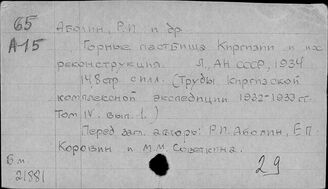 65
А-15
Аболин, Р.И. и др
Горные пастбища Киргизии и их
реконструкция. Л., АН СССР, 1934
148 стр с илл. (Труды Киргизской
комплексной экспедиции 1932-1933 гг.
Том IV. вып. 1.)
Перед загл. авторы: Р.И. Аболин, Е.П.
Коровин и М.М. Советкина.
Б м
21881
29